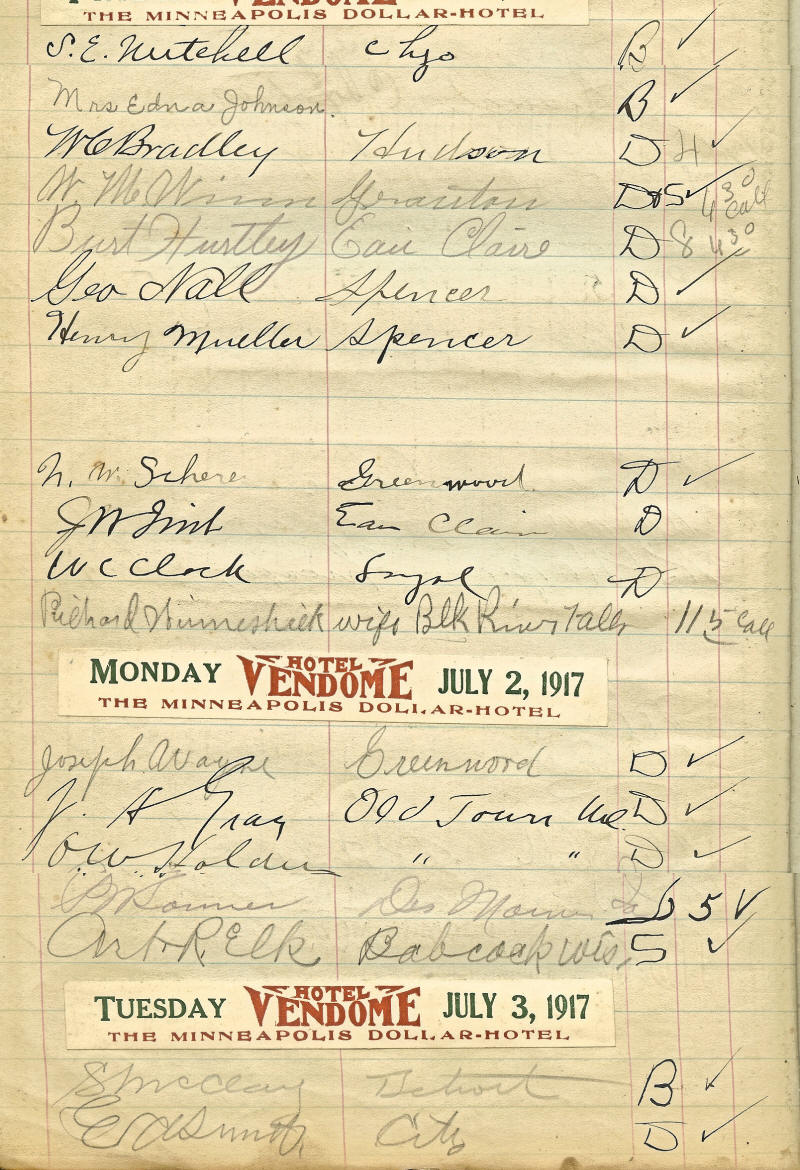 THE MINNEAPOLIS DOLLAR-HOTEL
S. E. Mitchell Chgo B ✓
Mrs Edna Johnson. B ✓
WC Bradley Hudson D 4 ✓
W. M. Winn Granton D 5 ✓ 4 30 Call
Burt Hurtley Eau Claire D 8 4 30
Geo Nall Spencer D ✓
Henry Mueller Spencer D ✓
N. W. Schere Greenwood D ✓
J W Eau Clair D
W C Clock Loyal D
Richard Winneshiek wife Blk River Falls 11 5 Call
MONDAY HOTEL VENDOME JULY 2, 1917
THE MINNEAPOLIS DOLLAR-HOTEL
Joseph Wayne Greenwood D ✓
J. A Gray Old Town Me. D ✓
O. W. Holden " " D ✓
Des Moines Ia 5 V
Art R. Elk Babcock Wis. S ✓
TUESDAY HOTEL VENDOME JULY 3, 1917
THE MINNEAPOLIS DOLLAR-HOTEL
S McClary Detroit B ✓
City D ✓